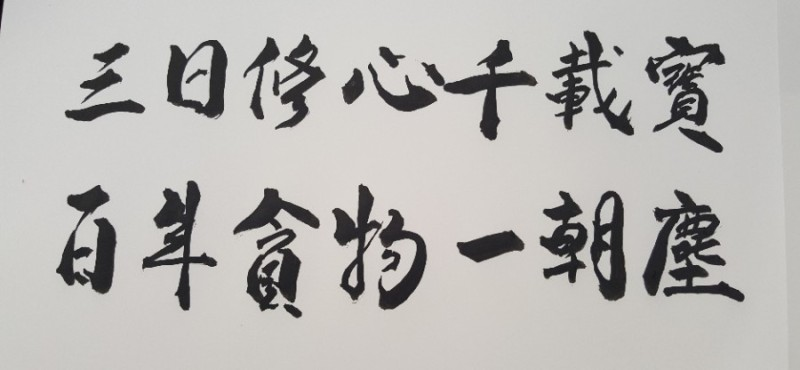 三日修心千載寶
百年貪物一朝塵